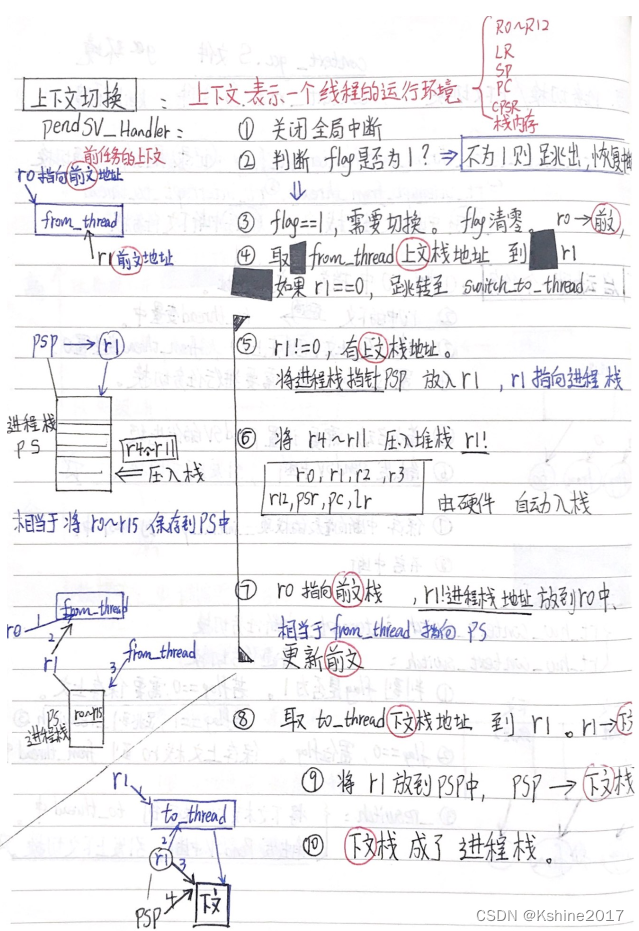 R0~R12
LR
SP
PC
CPSR
栈内存
上下文切换 : 上下文 表示一个线程的运行环境
pendSV_Handler: ① 关闭全局中断
前任务的上下文
② 判断 flag是否为1? ⇒ 不为1则跳出,恢复
r0指向前文地址
from_thread
r1 前文地址
③ flag==1,需要切换。 flag清零。 r0→前文,
④ 取 from_thread 上文栈地址 到 r1
如果 r1==0, 跳转至 switch_to_thread
psp → r1
⑤ r1!=0,有上文栈地址。
将进程栈指针PSP 放入r1 ,r1指向进程栈
进程栈
PS
r4~r11
⇐ 压入栈
⑥ 将 r4~r11 压入堆栈 r1!
r0, r1, r2, r3
r12, psr, pc, lr
由硬件 自动入栈
相当于将 r0~r15 保存到PS中
⑦ r0指向前文栈 ,r1!进程栈地址 放到r0中、
相当于from_thread 指向 PS
更新前文
from_thread
r0 1
2
r1
from_thread
3
PS
进程栈
r0~r15
⑧ 取 to_thread 下文栈地址 到 r1 。r1→下文
⑨ 将 r1 放到PSP中, PSP → 下文栈
⑩ 下文栈 成了 进程栈。
r1
to_thread
2
r1 3
4
PSP
下文
CSDN @Kshine2017